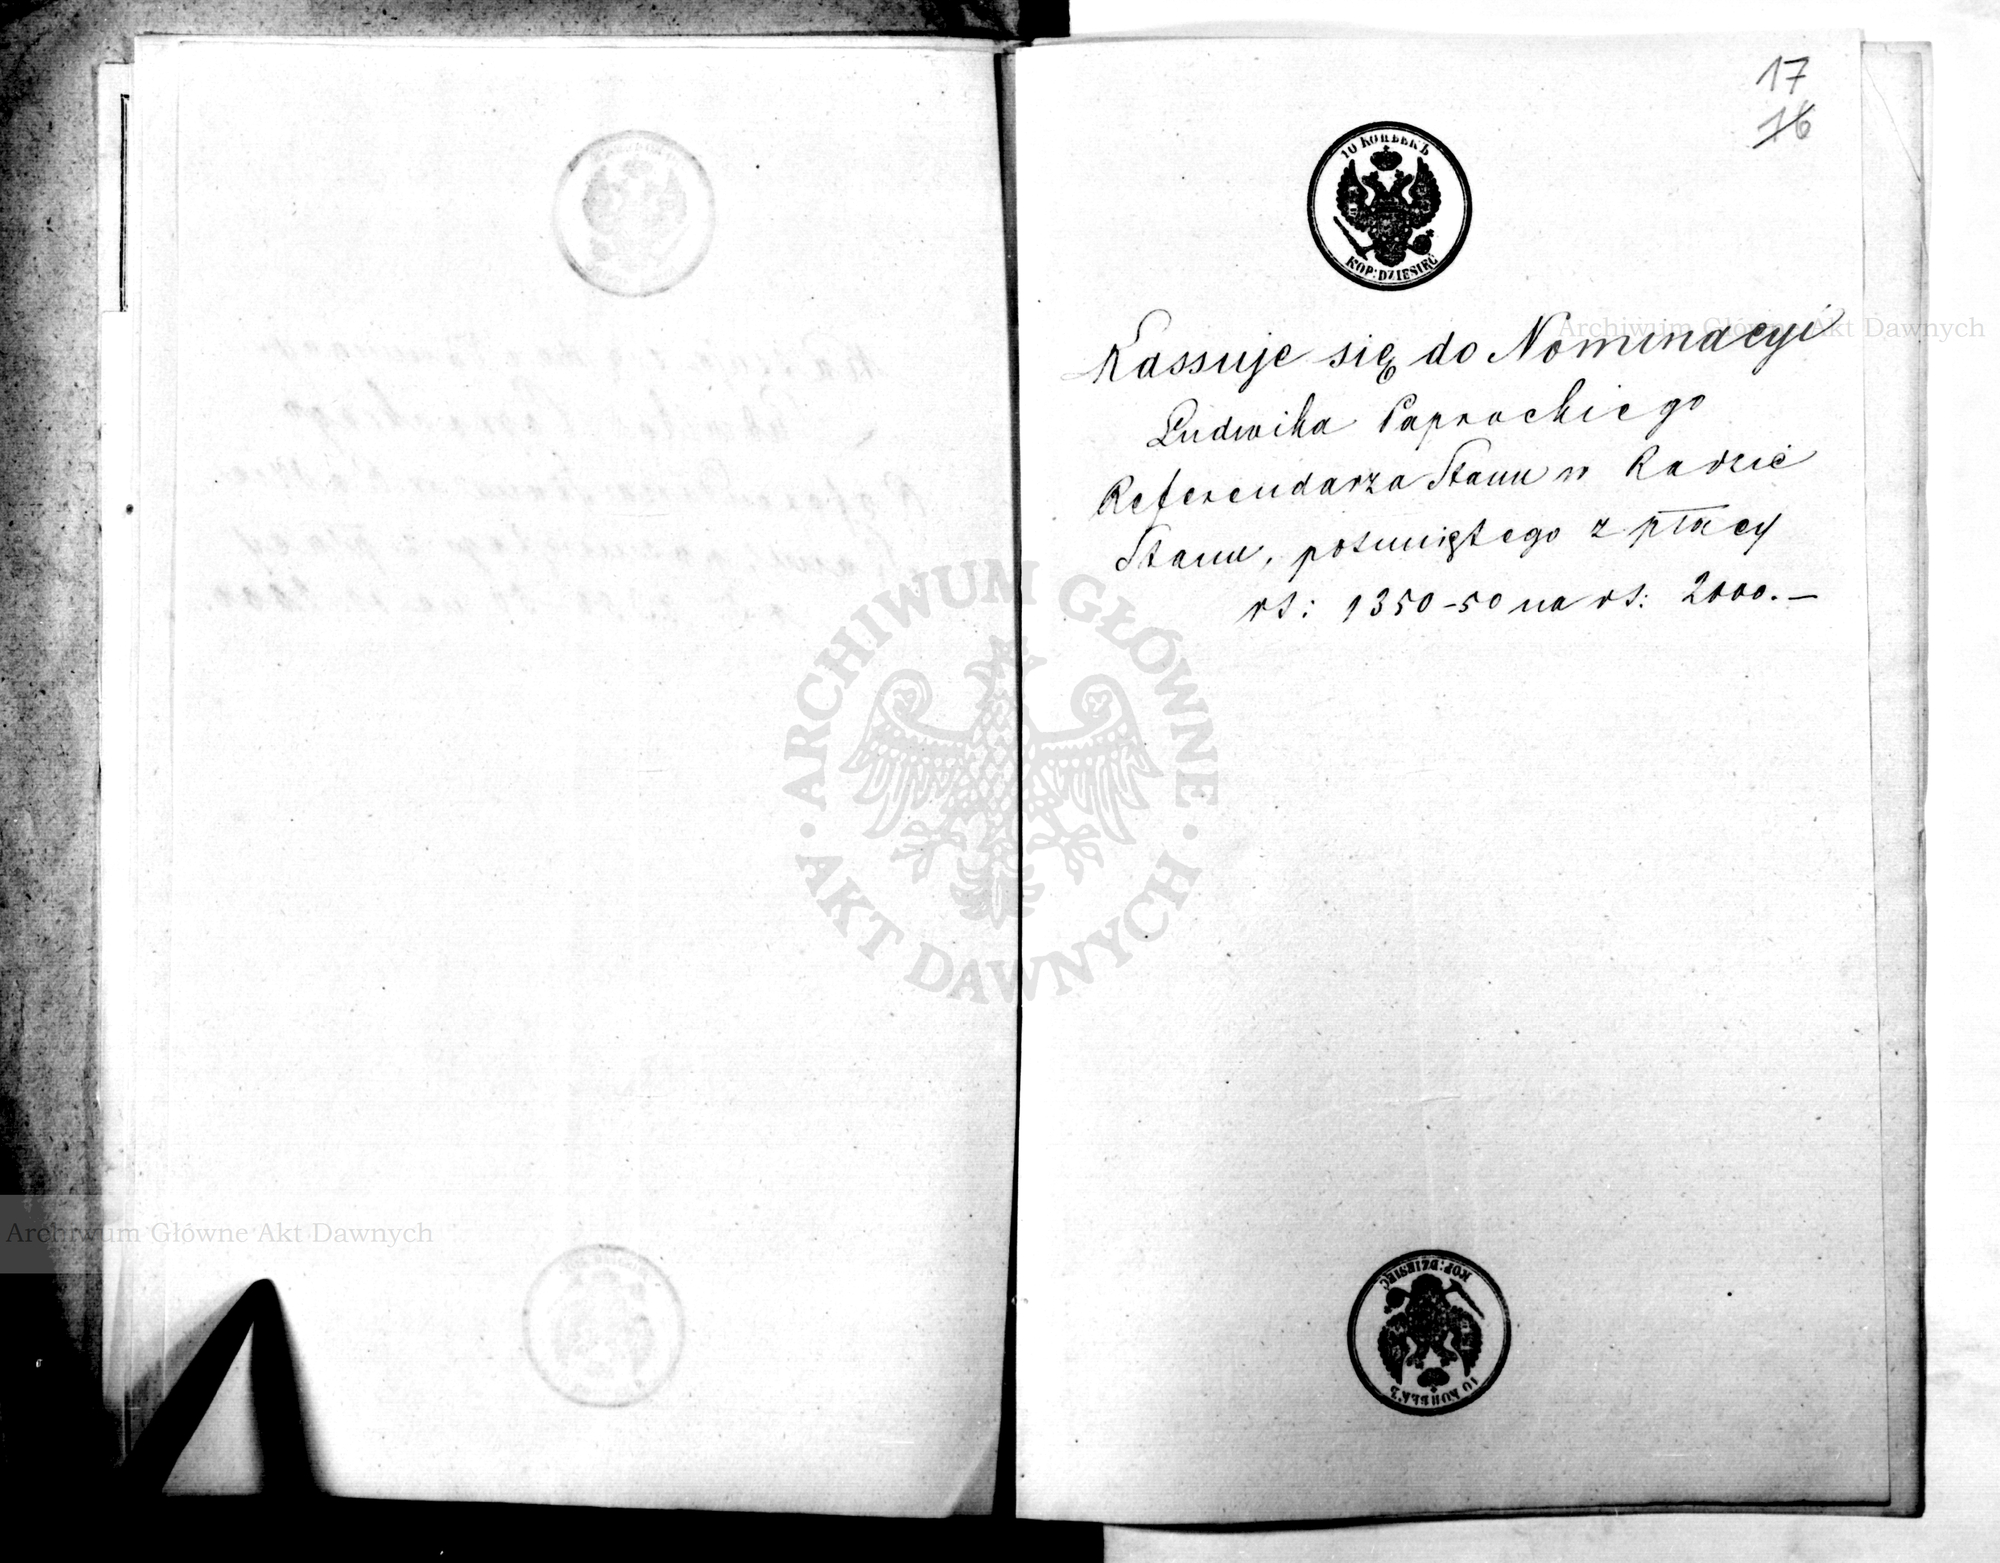 17
16
10 КОПѢЕКЪ
KOP: DZIESIĘĆ
Kassuje się do Nominacyi
Ludwika Paprockiego
Referendarza Stanu w Radzie
Stanu, posuniętego z płacy
rs: 1350-50 na rs: 2000.—
ARCHIWUM GŁÓWNE
AKT DAWNYCH
Archiwum Główne Akt Dawnych
Archiwum Główne Akt Dawnych
KOP: DZIESIĘĆ
10 КОПѢЕКЪ